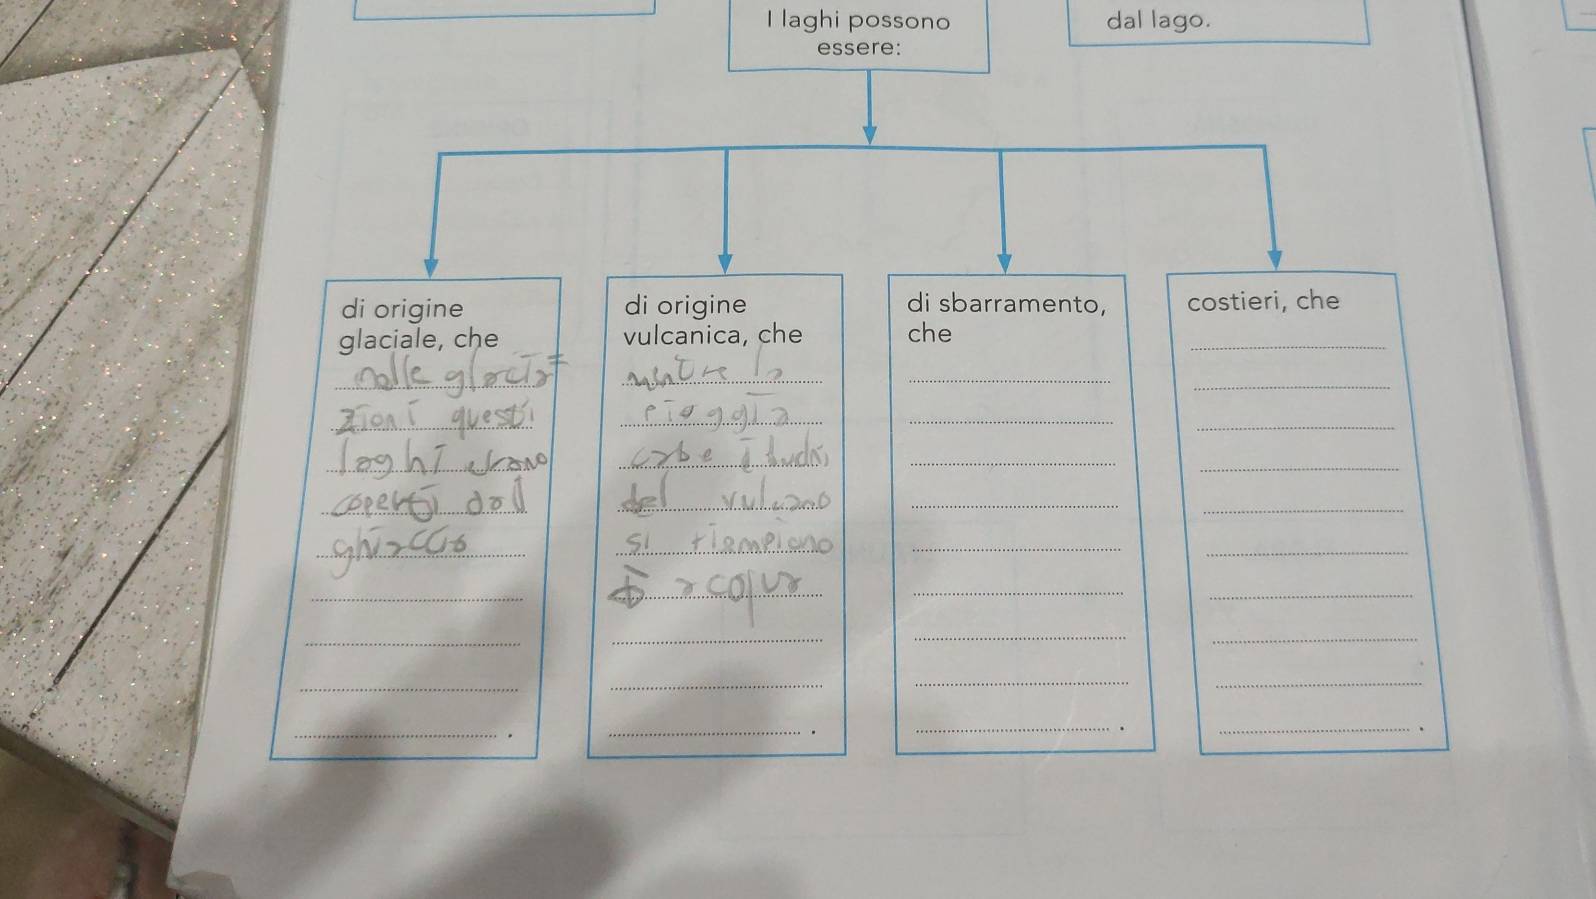 I laghi possono
essere:
dal lago.
di origine
glaciale, che
nelle glacia=
zioni questi
laghi erano
coperti dal
ghiaccio
.
di origine
vulcanica, che
mentre la
pioggia
cabe
del vulcano
si riempiono
acqua
.
di sbarramento,
che
.
costieri, che
.